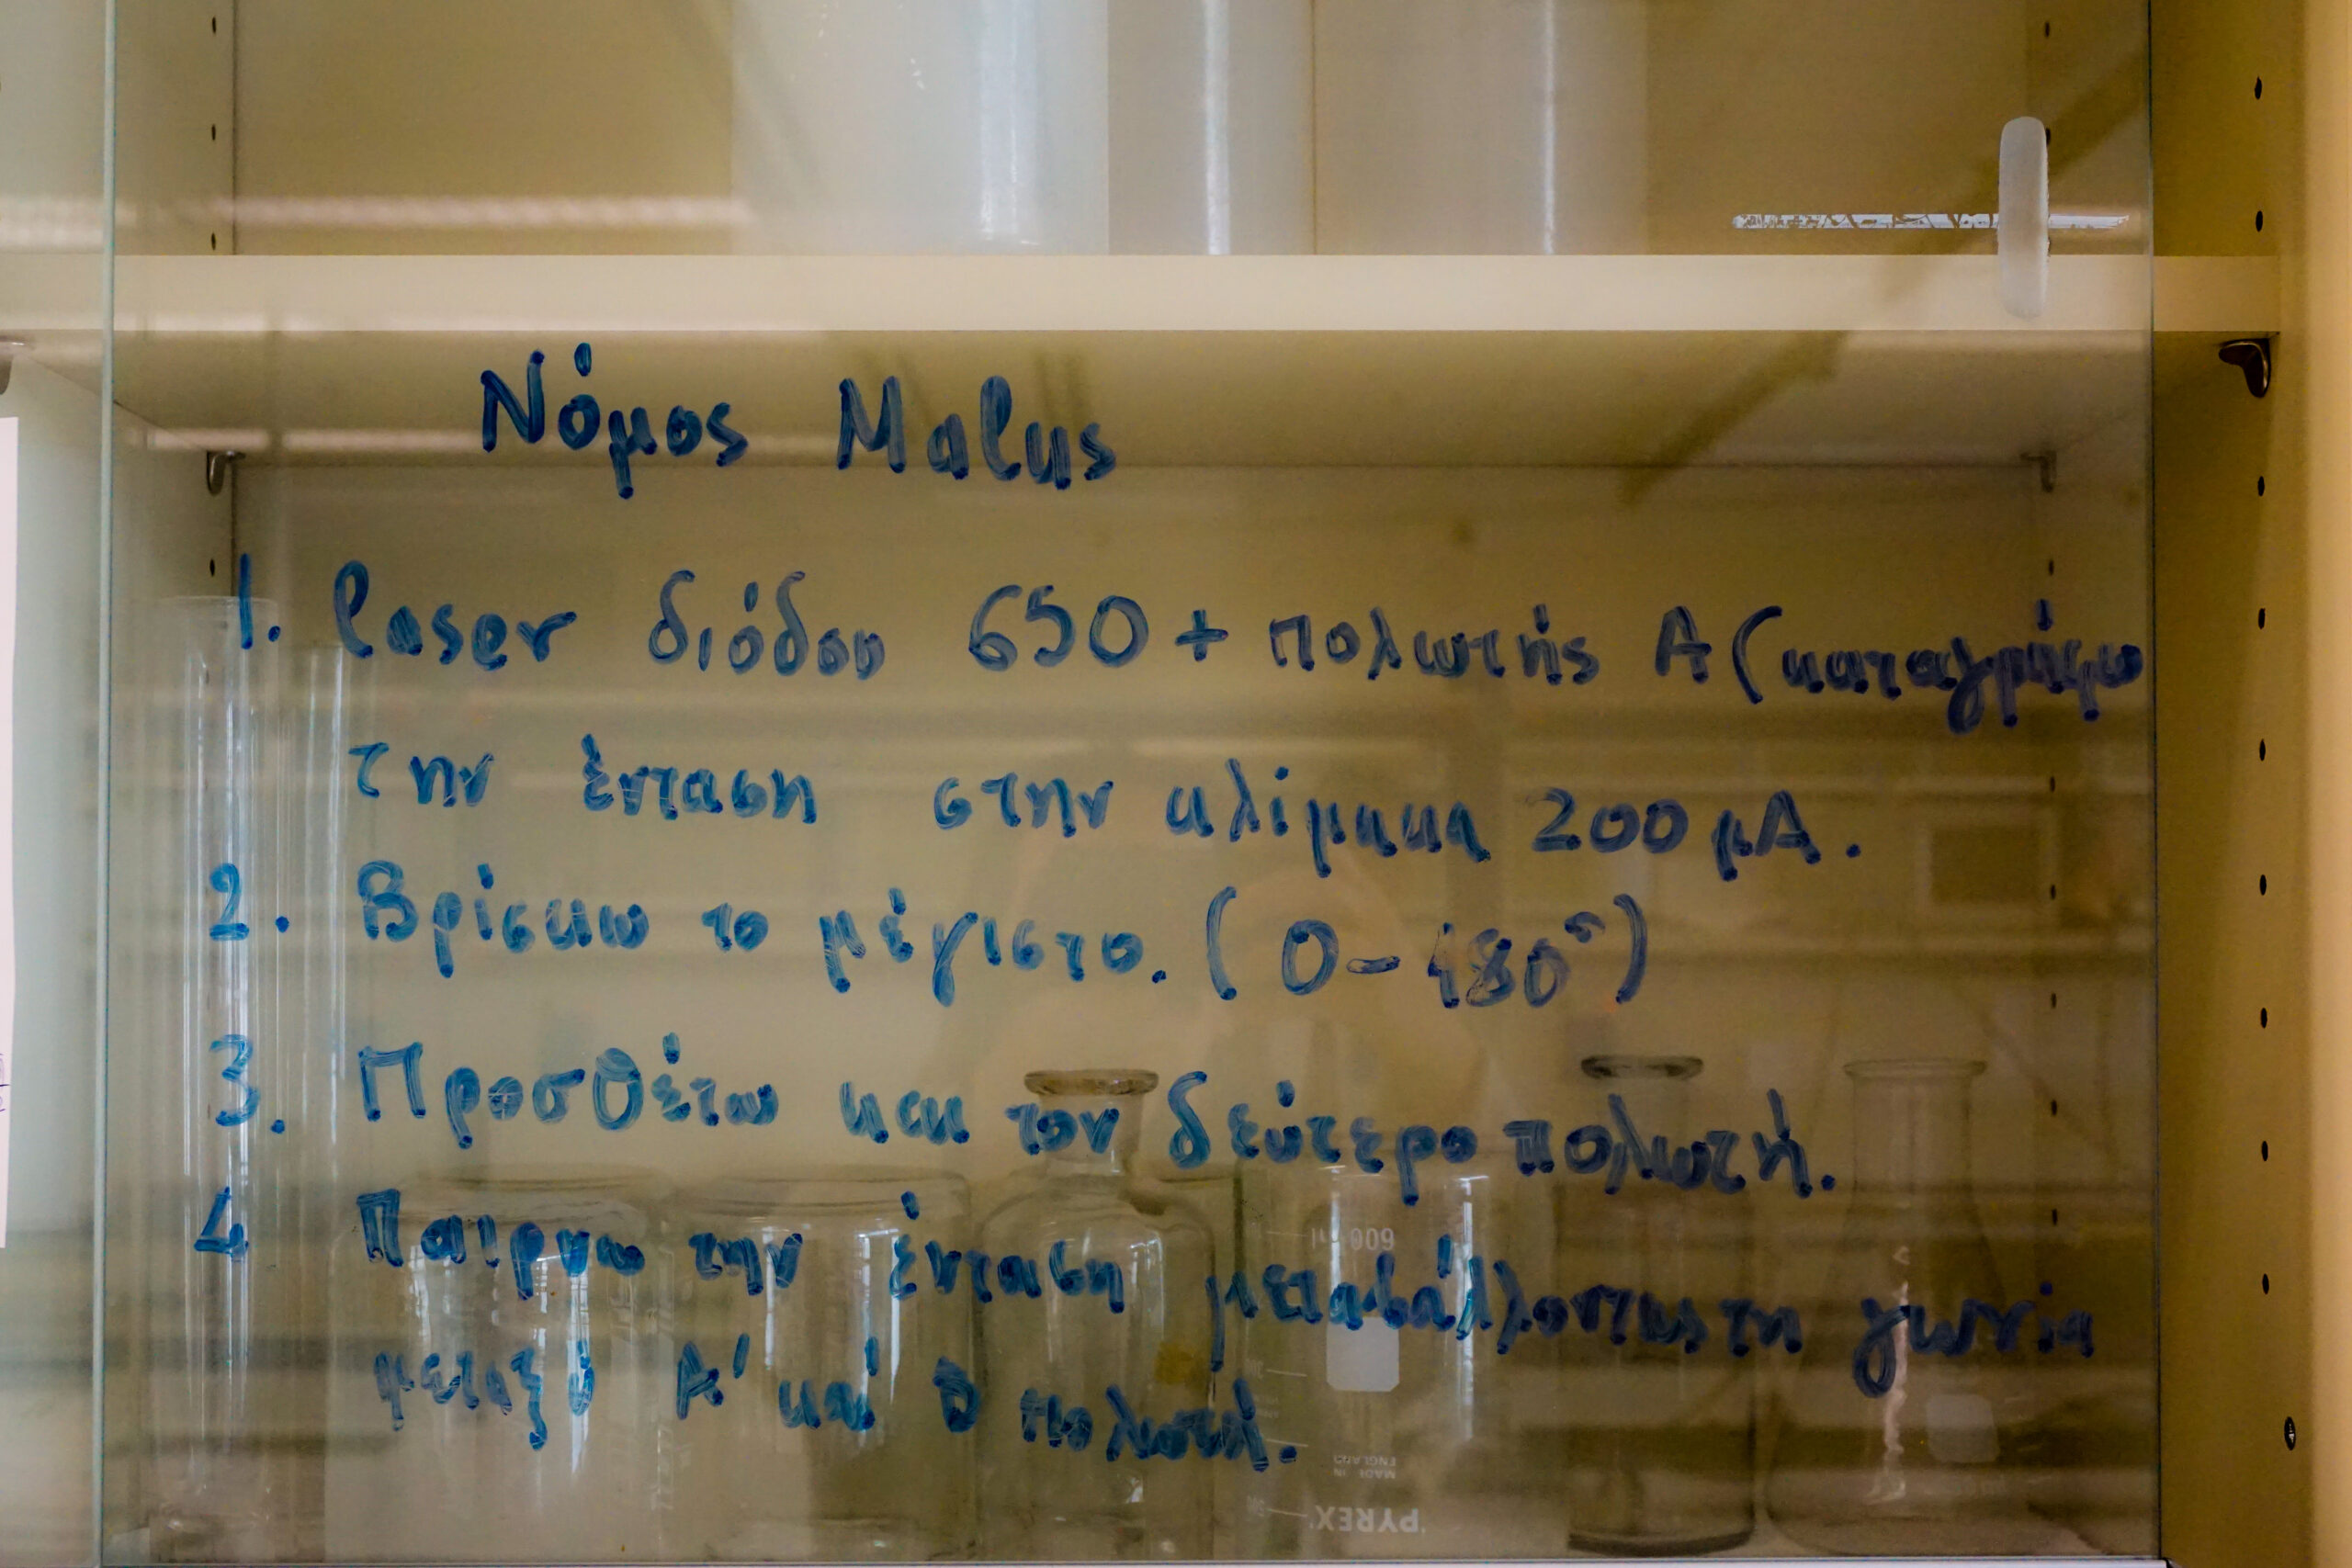 Νόμος Malus
1. laser διόδου 650 + πολωτής Α (καταγράφω
την ένταση στην κλίμακα 200 μΑ.
2. Βρίσκω το μέγιστο. (0-180°)
3. Προσθέτω και τον δεύτερο πολωτή.
4 Παίρνω την ένταση μεταβάλλοντας τη γωνία
μεταξύ Α' και πολωτή.
600 ml
MADE IN
ENGLAND
PYREX